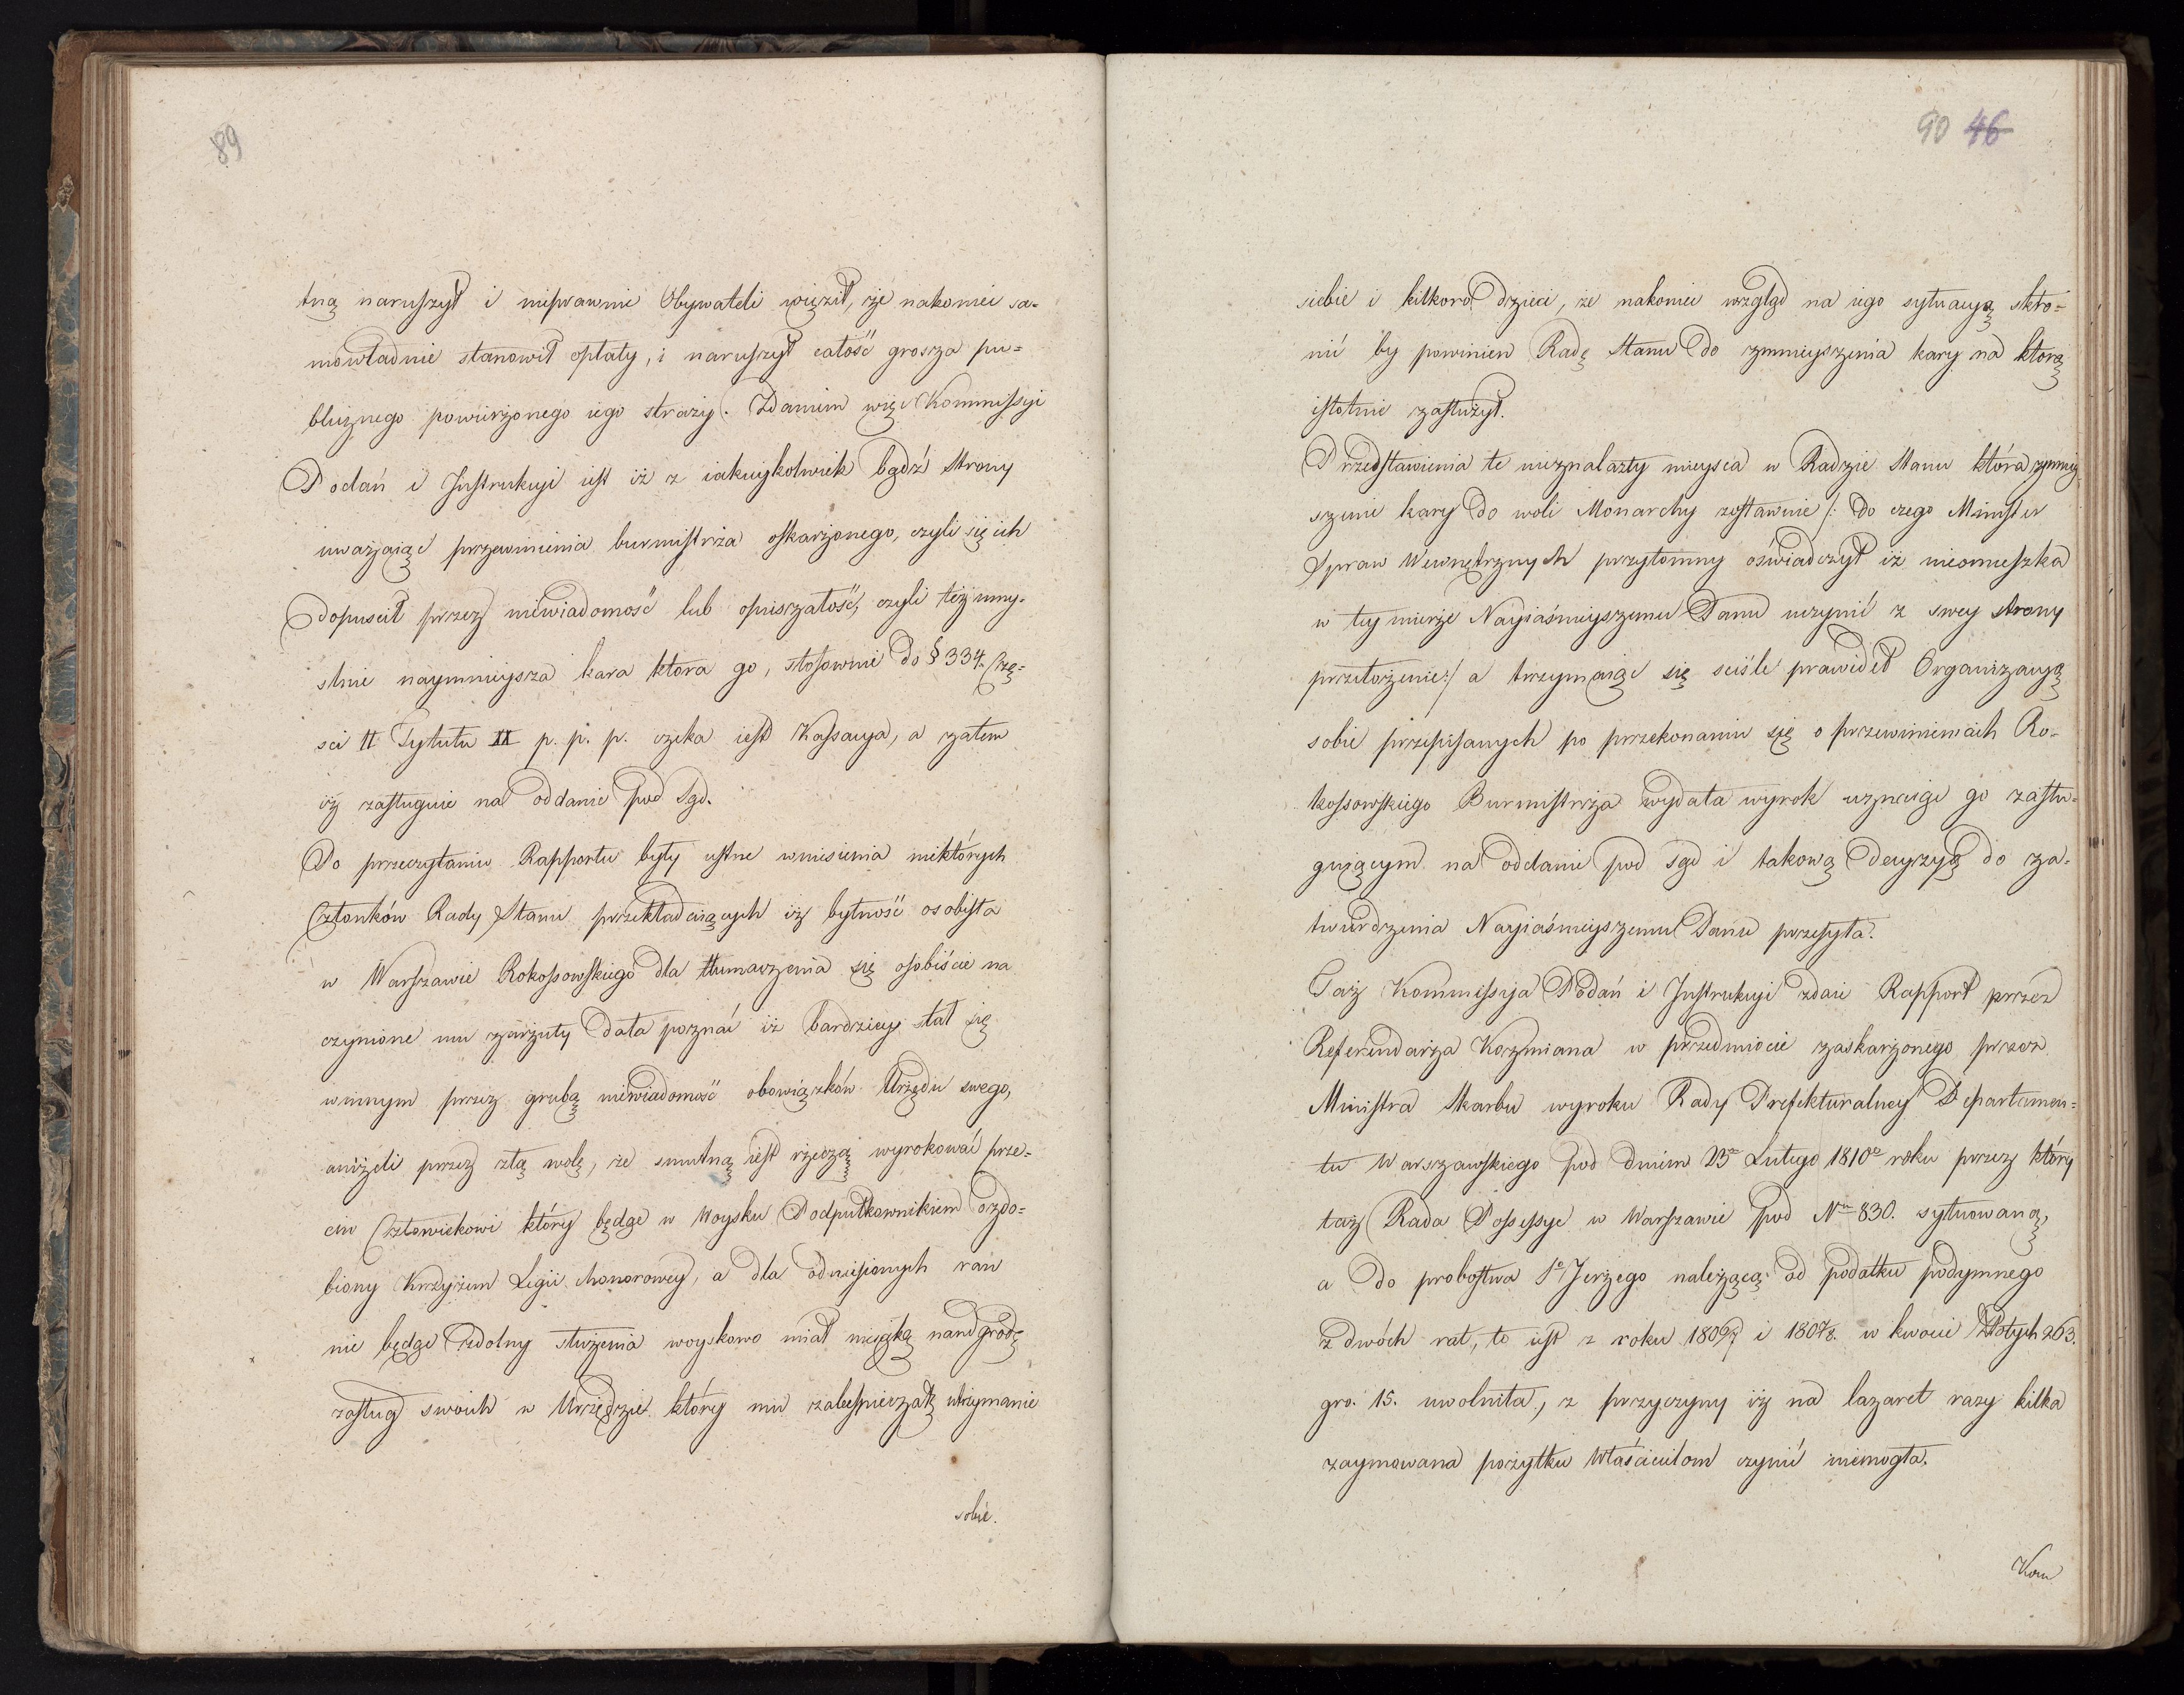 89
tną naruszył i nieprawnie Obywateli więził, że nakoniec sa-
mowładnie stanowił opłaty, i naruszył całość grosza pu-
blicznego powierzonego iego straży. Zdaniem więc Kommissyi
Podań i Instrukcyi iest iż z iakieykolwiek bądź strony
uważaiąc przewinienia burmistrza oskarżonego, czyli się ich
dopuścił przez niewiadomość lub opieszałość, czyli też umy-
ślnie naymnieysza kara ktora go, stosownie do § 334. Czę-
ści II Tytułu XX p. p. p. czeka iest Kassacya, a zatem
iż zasługuie na oddanie pod Sąd.
Po przeczytaniu Rapportu były ustne wniesienia niektórych
Członków Rady Stanu przekładaiących iż bytność osobista
w Warszawie Rokossowskiego dla tłumaczenia się osobiście na
czynione mu zarzuty dała poznać iż bardziey stał się
winnym przez grubą niewiadomość obowiązków Urzędu swego,
aniżeli przez złą wolę, że smutną iest rzeczą wyrokować prze-
ciw Człowiekowi który będąc w Woysku Podpułkownikiem ozdo-
biony Krzyżem Legii Honorowey, a dla odniesionych ran
nie będąc zdolny służenia woyskowo miał nieiaką nandgrodę
zasług swoich w Urzędzie który mu zabespieczał utrzymanie
sobie.
90 46
siebie i kilkoro dzieci, że nakoniec wzgląd na iego sytuacyą skło-
nić by powinien Radę Stanu do zmnieyszenia kary na ktorą
istotnie zasłużył.
Przedstawienia te nieznalazły mieysca w Radzie Stanu która zmniey
szenie kary do woli Monarchy zostawnie /: do czego Minister
Spraw Wewnętrznych przytomny oświadczył iż nieomieszka
w tey mierze Nayiaśnieyszemu Panu uczynić z swey strony
przełożenie :/ a trzymaiąc się ściśle prawideł Organizacyą
sobie przepisanych po przekonaniu się o przewinieniach Ro-
kossowskiego Burmistrza wydała wyrok uznaiąc go zasłu-
guiącym na oddanie pod sąd i takową decyzyą do za-
twierdzenia Nayiaśnieyszemu Panu przesyła.
Taż Kommissyia Podań i Instrukcyi zdaie Rapport przez
Referendarza Kozmiana w przedmiocie zaskarżonego przez
Ministra Skarbu wyroku Rady Prefekturalney Departamen-
tu Warszawskiego pod dniem 23º Lutego 1810º roku przez który
taż Rada Possessye w Warszawie pod Nm 830. sytuowaną,
a do probostwa Sº Jerzego należącą od podatku podymnego
z dwóch rat, to iest z roku 1806/7 i 1807/8. w kwocie Złotych 263.
gro. 15. uwolniła, z przyczyny iż na lazaret razy kilka
zaymowana pożytku Właścicielom czynić niemogła.
Kom